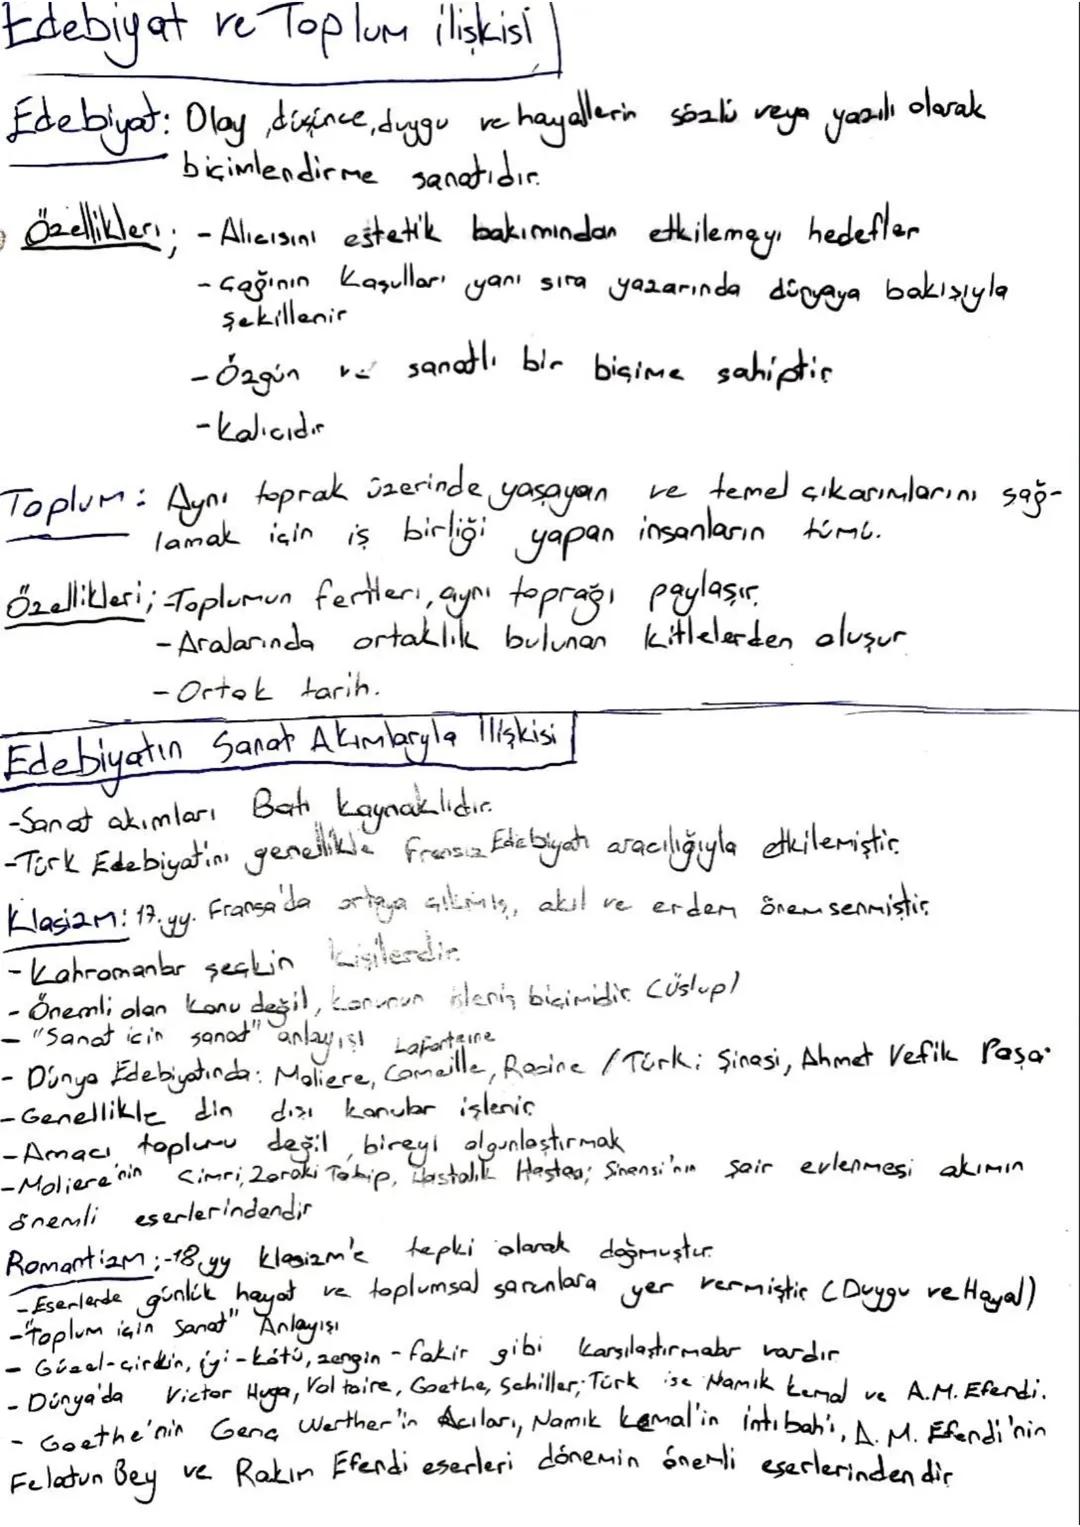 Edebiyat ve Toplum ilişkisi
Edebiyat: Olay, düşünce, duygu ve hayallerin sözlü veya yazılı olarak
biçimlendirme sanatıdır.
Özellikleri; - Alıcısını estetik bakımından etkilemeyi hedefler
- Çağının Koşulları yanı sıra yazarında dünyaya bakışıyla
şekillenir
- Özgün ve sanatlı bir biçime sahiptir
- Kalıcıdır
Toplum: Aynı toprak üzerinde yaşayan ve temel çıkarımlarını sağ-
lamak için iş birliği yapan insanların tümü.
Özellikleri; -Toplumun fertleri, aynı toprağı paylaşır.
- Aralarında ortaklık bulunan kitlelerden oluşur
- Ortak tarih.
Edebiyatın Sanat Akımlarıyla İlişkisi
-Sanat akımları Batı kaynaklıdır.
-Türk Edebiyatını genellikle Fransız Edebiyatı aracılığıyla etkilemiştir.
Klasizm: 17.yy. Fransa'da ortaya çıkmış, akıl ve erdem önemsenmiştir.
- Kahramanlar seçkin kişilerdir.
- Önemli olan konu değil, konunun işleniş biçimidir. (üslup)
- "Sanat için sanat" anlayışı Lafontaine
- Dünya Edebiyatında: Moliere, Corneille, Racine / Türk: Şinasi, Ahmet Vefik Paşa.
- Genellikle din dışı konular işlenir
- Amacı toplumu değil, bireyi olgunlaştırmak
- Moliere'nin Cimri, Zoraki Tabip, Hastalık Hastası; Şinasi'nin şair evlenmesi akımın
önemli eserlerindendir
Romantizm; -18.yy klasizm'e tepki olarak doğmuştur.
- Eserlerde günlük hayat ve toplumsal sorunlara yer vermiştir (Duygu ve Hayal)
- "Toplum için Sanat" Anlayışı
- Güzel-çirkin, iyi-kötü, zengin-fakir gibi karşılaştırmalar vardır
- Dünya'da Victor Hugo, Voltaire, Goethe, Schiller; Türk ise Namık Kemal ve A.M. Efendi.
- Goethe'nin Genç Werther'in Acıları, Namık Kemal'in İntibah'ı, A. M. Efendi'nin
Felatun Bey ve Rakım Efendi eserleri dönemin önemli eserlerindendir